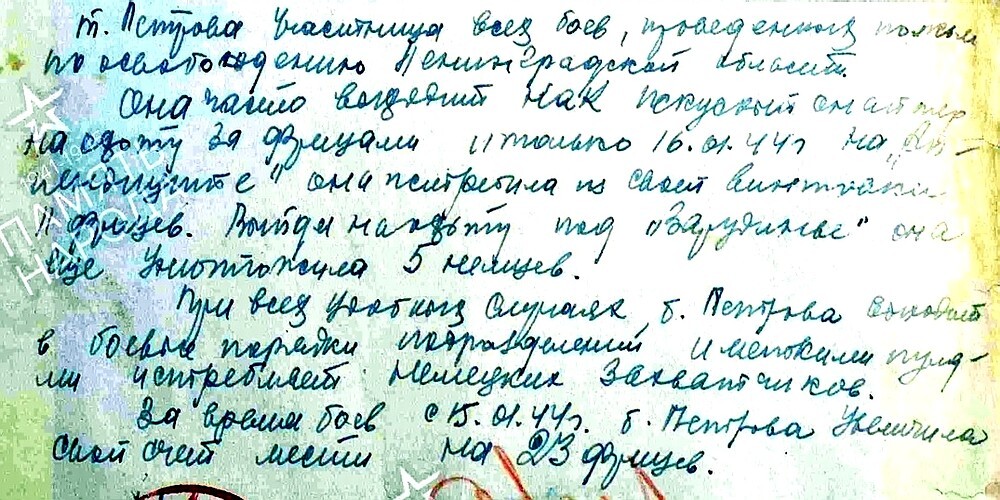 т. Петрова участница всех боев, проведенных полком
по освобождению Ленинградской области.
Она часто выходит как искусный снайпер
на охоту за фрицами и только 16.01.44г на
она истребила из своей винтовки
11 фрицев. Выйдя на охоту под "Зарудинье" она
еще уничтожила 5 немцев.
При всех удобных случаях т. Петрова выходит
в боевые порядки подразделений и меткими пуля-
ми истребляет немецких захватчиков.
За время боев с 15.01.44г. т. Петрова увеличила
свой счет мести на 23 фрицев.
ПАМЯТЬ
НАРОДА